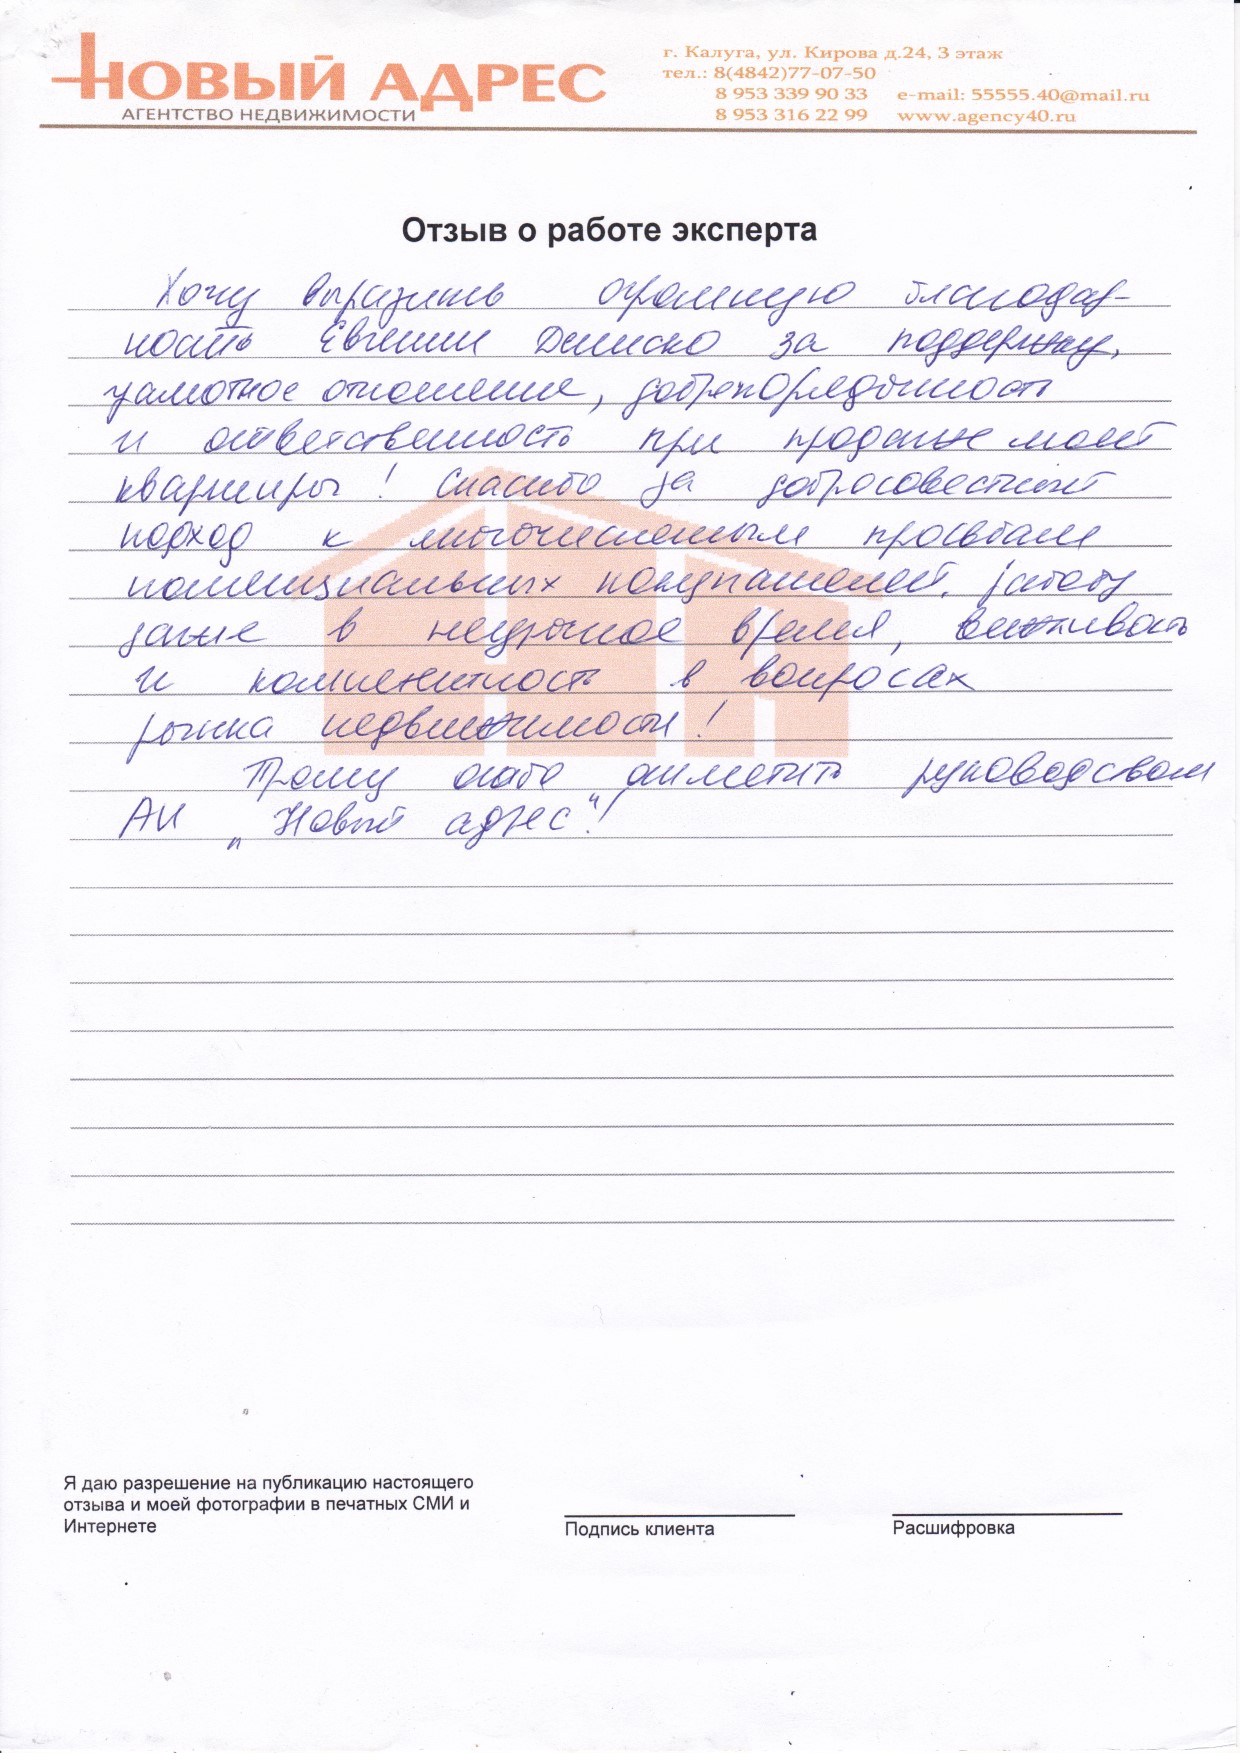 НОВЫЙ АДРЕС
АГЕНТСТВО НЕДВИЖИМОСТИ
г. Калуга, ул. Кирова д.24, 3 этаж
тел.: 8(4842)77-07-50
8 953 339 90 33 e-mail: 55555.40@mail.ru
8 953 316 22 99 www.agency40.ru
Отзыв о работе эксперта
Хочу выразить огромную благодар-
ность Евгении Дениско за поддержку,
грамотное отношение, добропорядочность
и ответственность при продаже моей
квартиры! Спасибо за добросовестный
подход к многочисленным просьбам
потенциальных покупателей, работу
даже в неурочное время, вежливость
и компетентность в вопросах
рынка недвижимости!
Прошу особо отметить руководством
АН "Новый адрес"!
Я даю разрешение на публикацию настоящего
отзыва и моей фотографии в печатных СМИ и
Интернете
Подпись клиента
Расшифровка